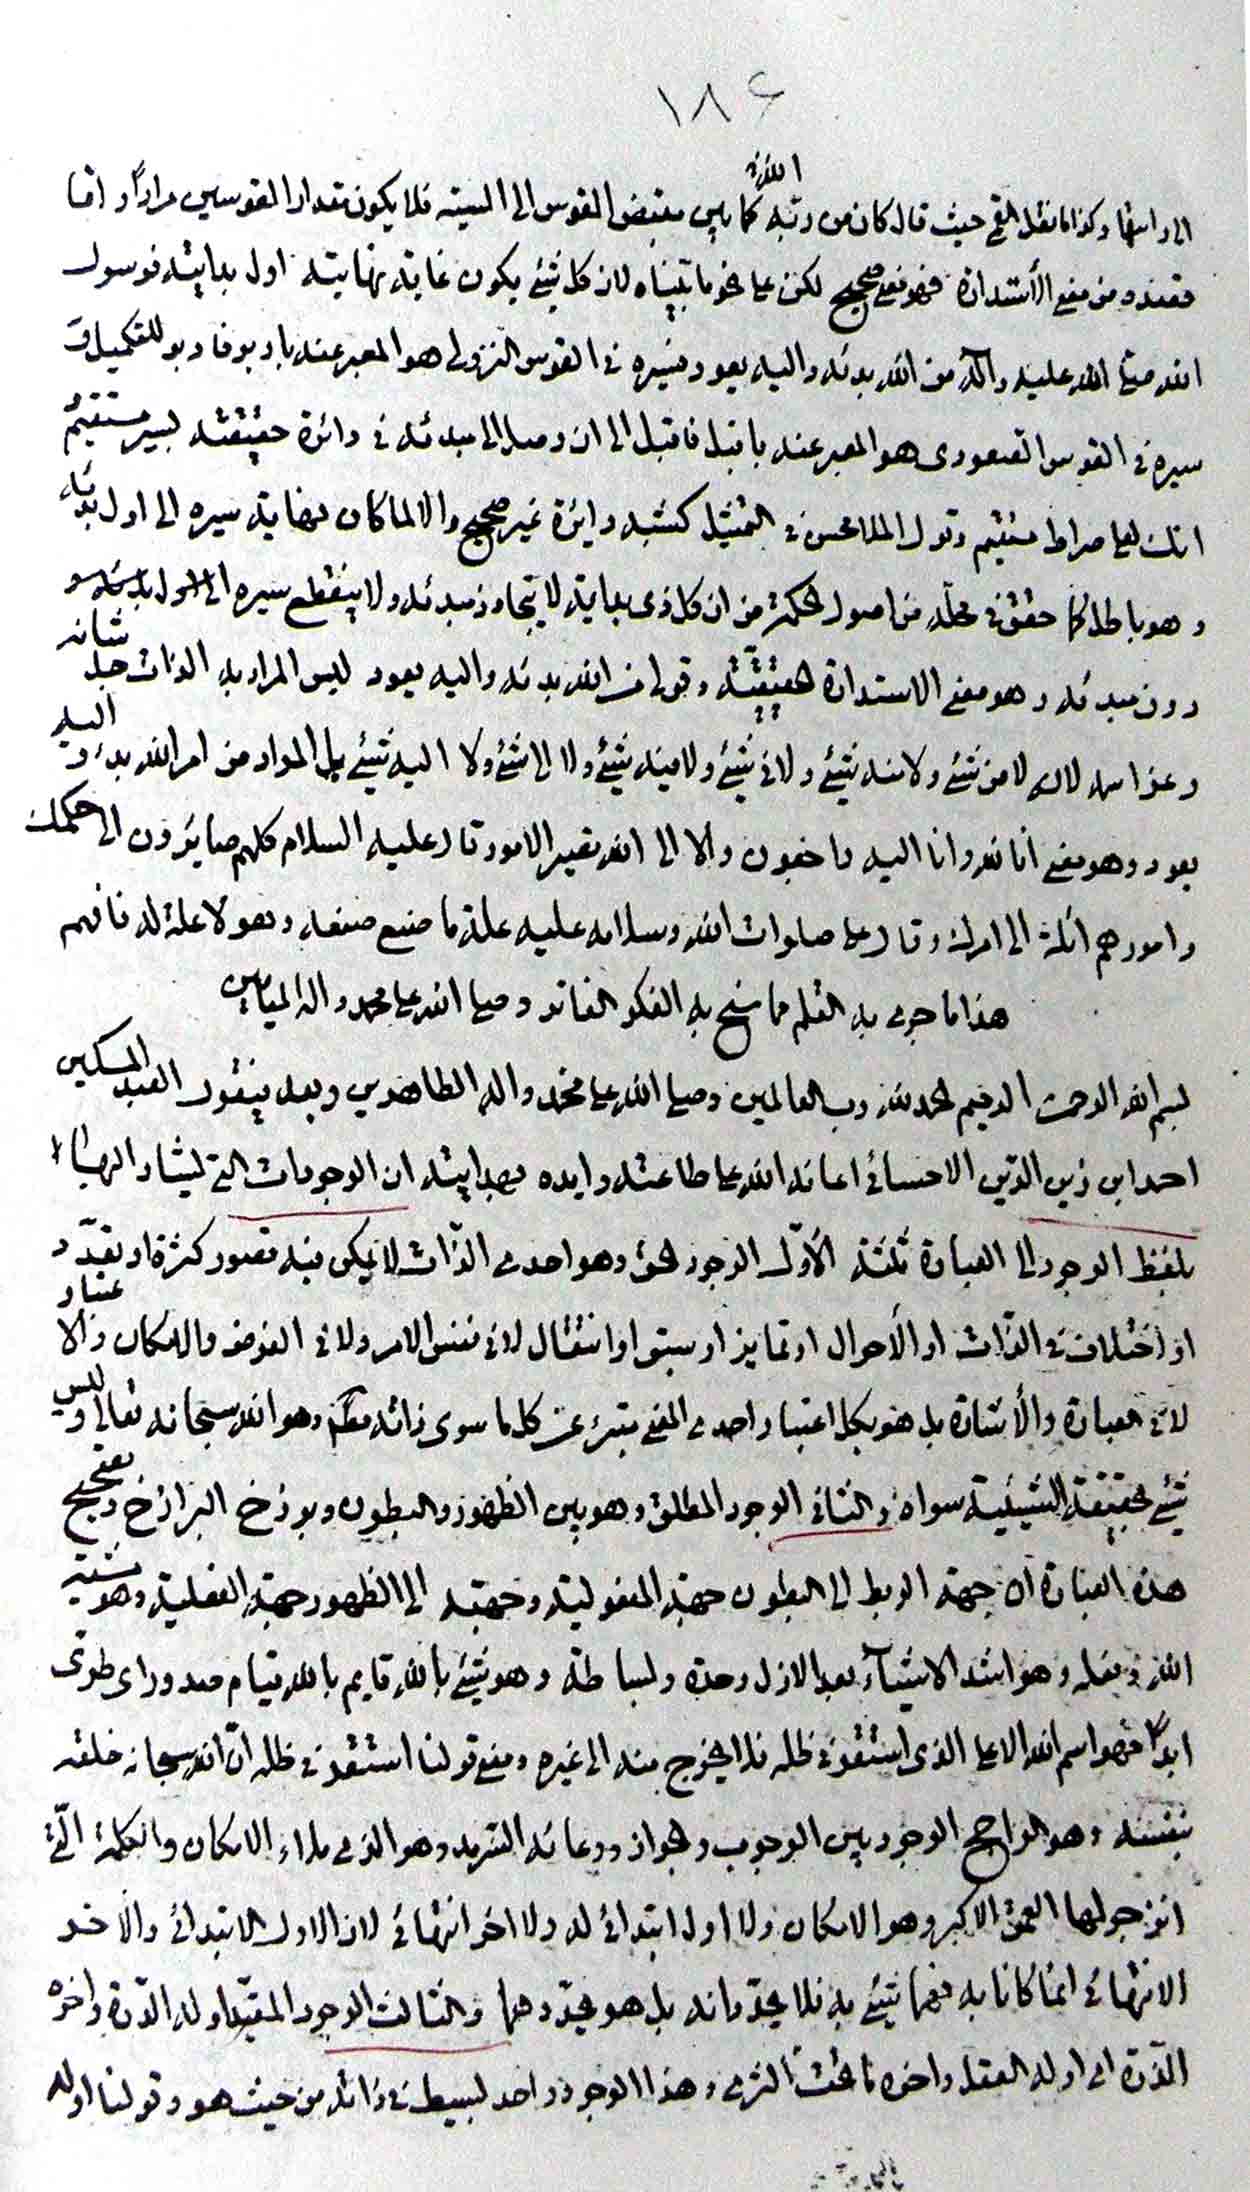 ١٨۶
الى راسها وكذا ما نقله القمي حيث قال كان من ربه كما بين مقبض القوس الى السية فلا يكون مقدار القوسين مرادا واما
اللّه
فعنده من معنى الاستدارة فهو معنى صحيح لكن على نحو ما بيّناه لان كل شيئ يكون غاية نهايته اول بدايته فرسول
الله صلى الله عليه وآله من الله بدئه واليه يعود فسيره في القوس النزولي هو المعبر عنه بادبر فادبر للتكميل و
سيره في القوس الصعودى هو المعبر عنه باقبل فاقبل الى ان وصل الى مبدئه في دائرة حقيقته بسير مستقيم و
انك لعلى صراط مستقيم وقول الملا محسن في التمثيل كشبه دايرة غير صحيح والا لما كان نهاية سيره الى اول بدئه
وهو باطل كما حقق في محله من اصول الحكمة من ان كل ذى بداية لا يتجاوز مبدئه ولا ينقطع سيره
دون مبدئه وهو معنى الاستدارة الحقيقية وقولي من الله بدئه واليه يعود ليس المراد به الذات جل شانه
وعز اسمه لان لا من شيئ ولا منه شيئ ولا في شيئ ولا فيه شيئ ولا الى شيئ ولا اليه شيئ بل المراد من امر الله بدء و اليه
يعود وهو معنى انا لله وانا اليه راجعون والا الى الله تصير الامور قال عليه السلام كلهم صايرون الى حكمك
وامورهم ائلة الى امرك وقال على صلوات الله وسلامه عليه علة ما صنع صنعه وهو لا علة له فافهم
هذا ما جرى به القلم مما سنح به الفكر الفاتر وصلى الله على محمد واله الميامين
بسم الله الرحمن الرحيم الحمد لله رب العالمين وصلى الله على محمد واله الطاهرين وبعد فيقول العبد المسكين
احمد ابن زين الدين الاحسائي اعانه الله على طاعته وايده بهدايته ان الوجودات التي يشار اليها
بلفظ الوجود في العبارة ثلثة الأوّل الوجود الحق وهو احدى الذّات لا يمكن فيه تصور كثرة او تعدّد
او اختلاف في الذّات او الأحوال او تمايز او سبق او انتقال لا في نفس الامر ولا في الفرض والامكان والاعتبار ولا
لا في العبارة والأشارة بل هو بكل اعتبار احدى المعنى متبرئ عن كل ما سوى ذاته مطلقا وهو الله سبحانه تعالى وليس
شيئ بحقيقة الشيئية سواه والثانى الوجود المطلق وهو بين الظهور والبطون وبرزخ البرازخ وتصحيح
هذه العبارة ان جهة الربط الى البطون جهة المفعولية وجهته الى الظهور جهة الفعلية وهو مشية
الله وفعله وهو اشد الاشيآء بعد الازل وحدة وبساطة وهو شيئ بالله قايم بالله قيام صدور اى طرى
ابدا فهو اسم الله الاعلى الذى استقر في ظله فلا يخرج منه الى غيره ومعنى قولنا استقر في ظله انّ الله سبحانه خلقه
بنفسه وهو الراجح الوجود بين الوجوب والجواز ووعائه السّرمد وهو الذى ملاء الامكان والكلمة الّتى
انزجر لها العمق الاكبر وهو الامكان ولا اول ابتدائي له ولا اخر انتهائي لان الاول الابتدائي والاخر
الانتهائي انما كانا به فهما شيئ به فلا يحدّدانه بل هو يحدّدهما والثالث الوجود المقيّد اوله الدّرة واخره
الذّرة اى اوله العقل واخره ما تحت الثرى وهذا الوجود واحد بسيط في ذاته من حيث هو وقولنا اوله